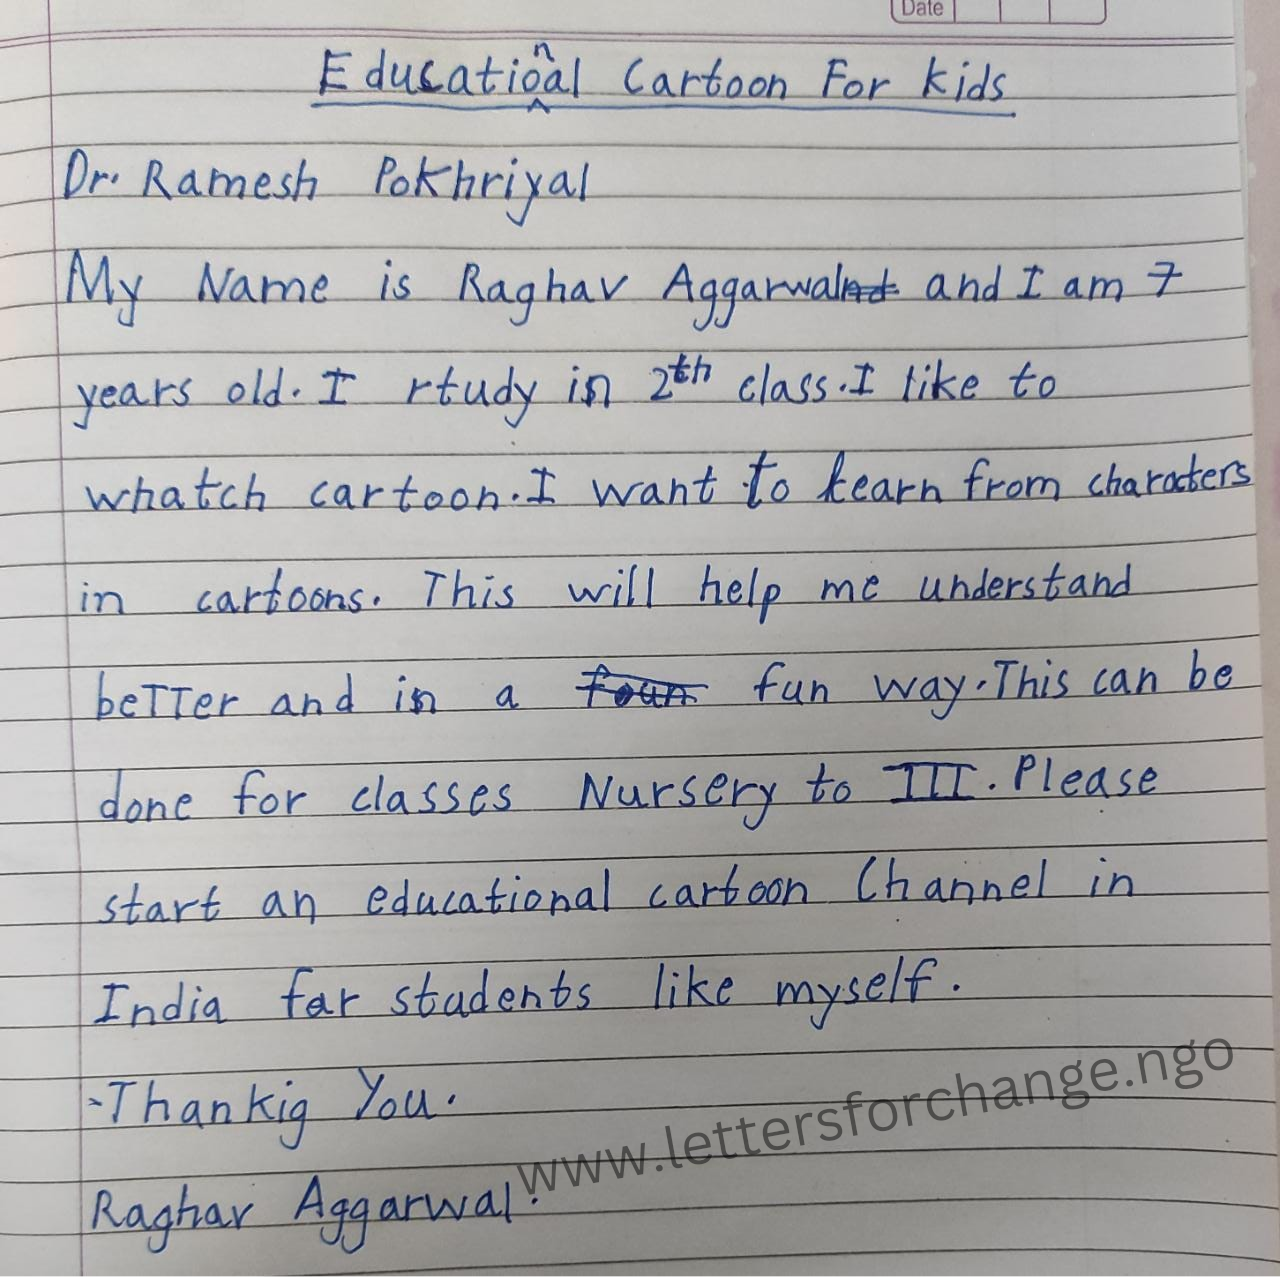 Date
Educational Cartoon For Kids
Dr. Ramesh Pokhriyal
My Name is Raghav Aggarwal and I am 7
years old. I rtudy in 2th class. I like to
whatch cartoon. I want to learn from characters
in cartoons. This will help me understand
beTTer and in a foun fun way. This can be
done for classes Nursery to III. Please
start an educational cartoon Channel in
India for students like myself.
-Thankig You.
Raghav Aggarwal.
www.lettersforchange.ngo